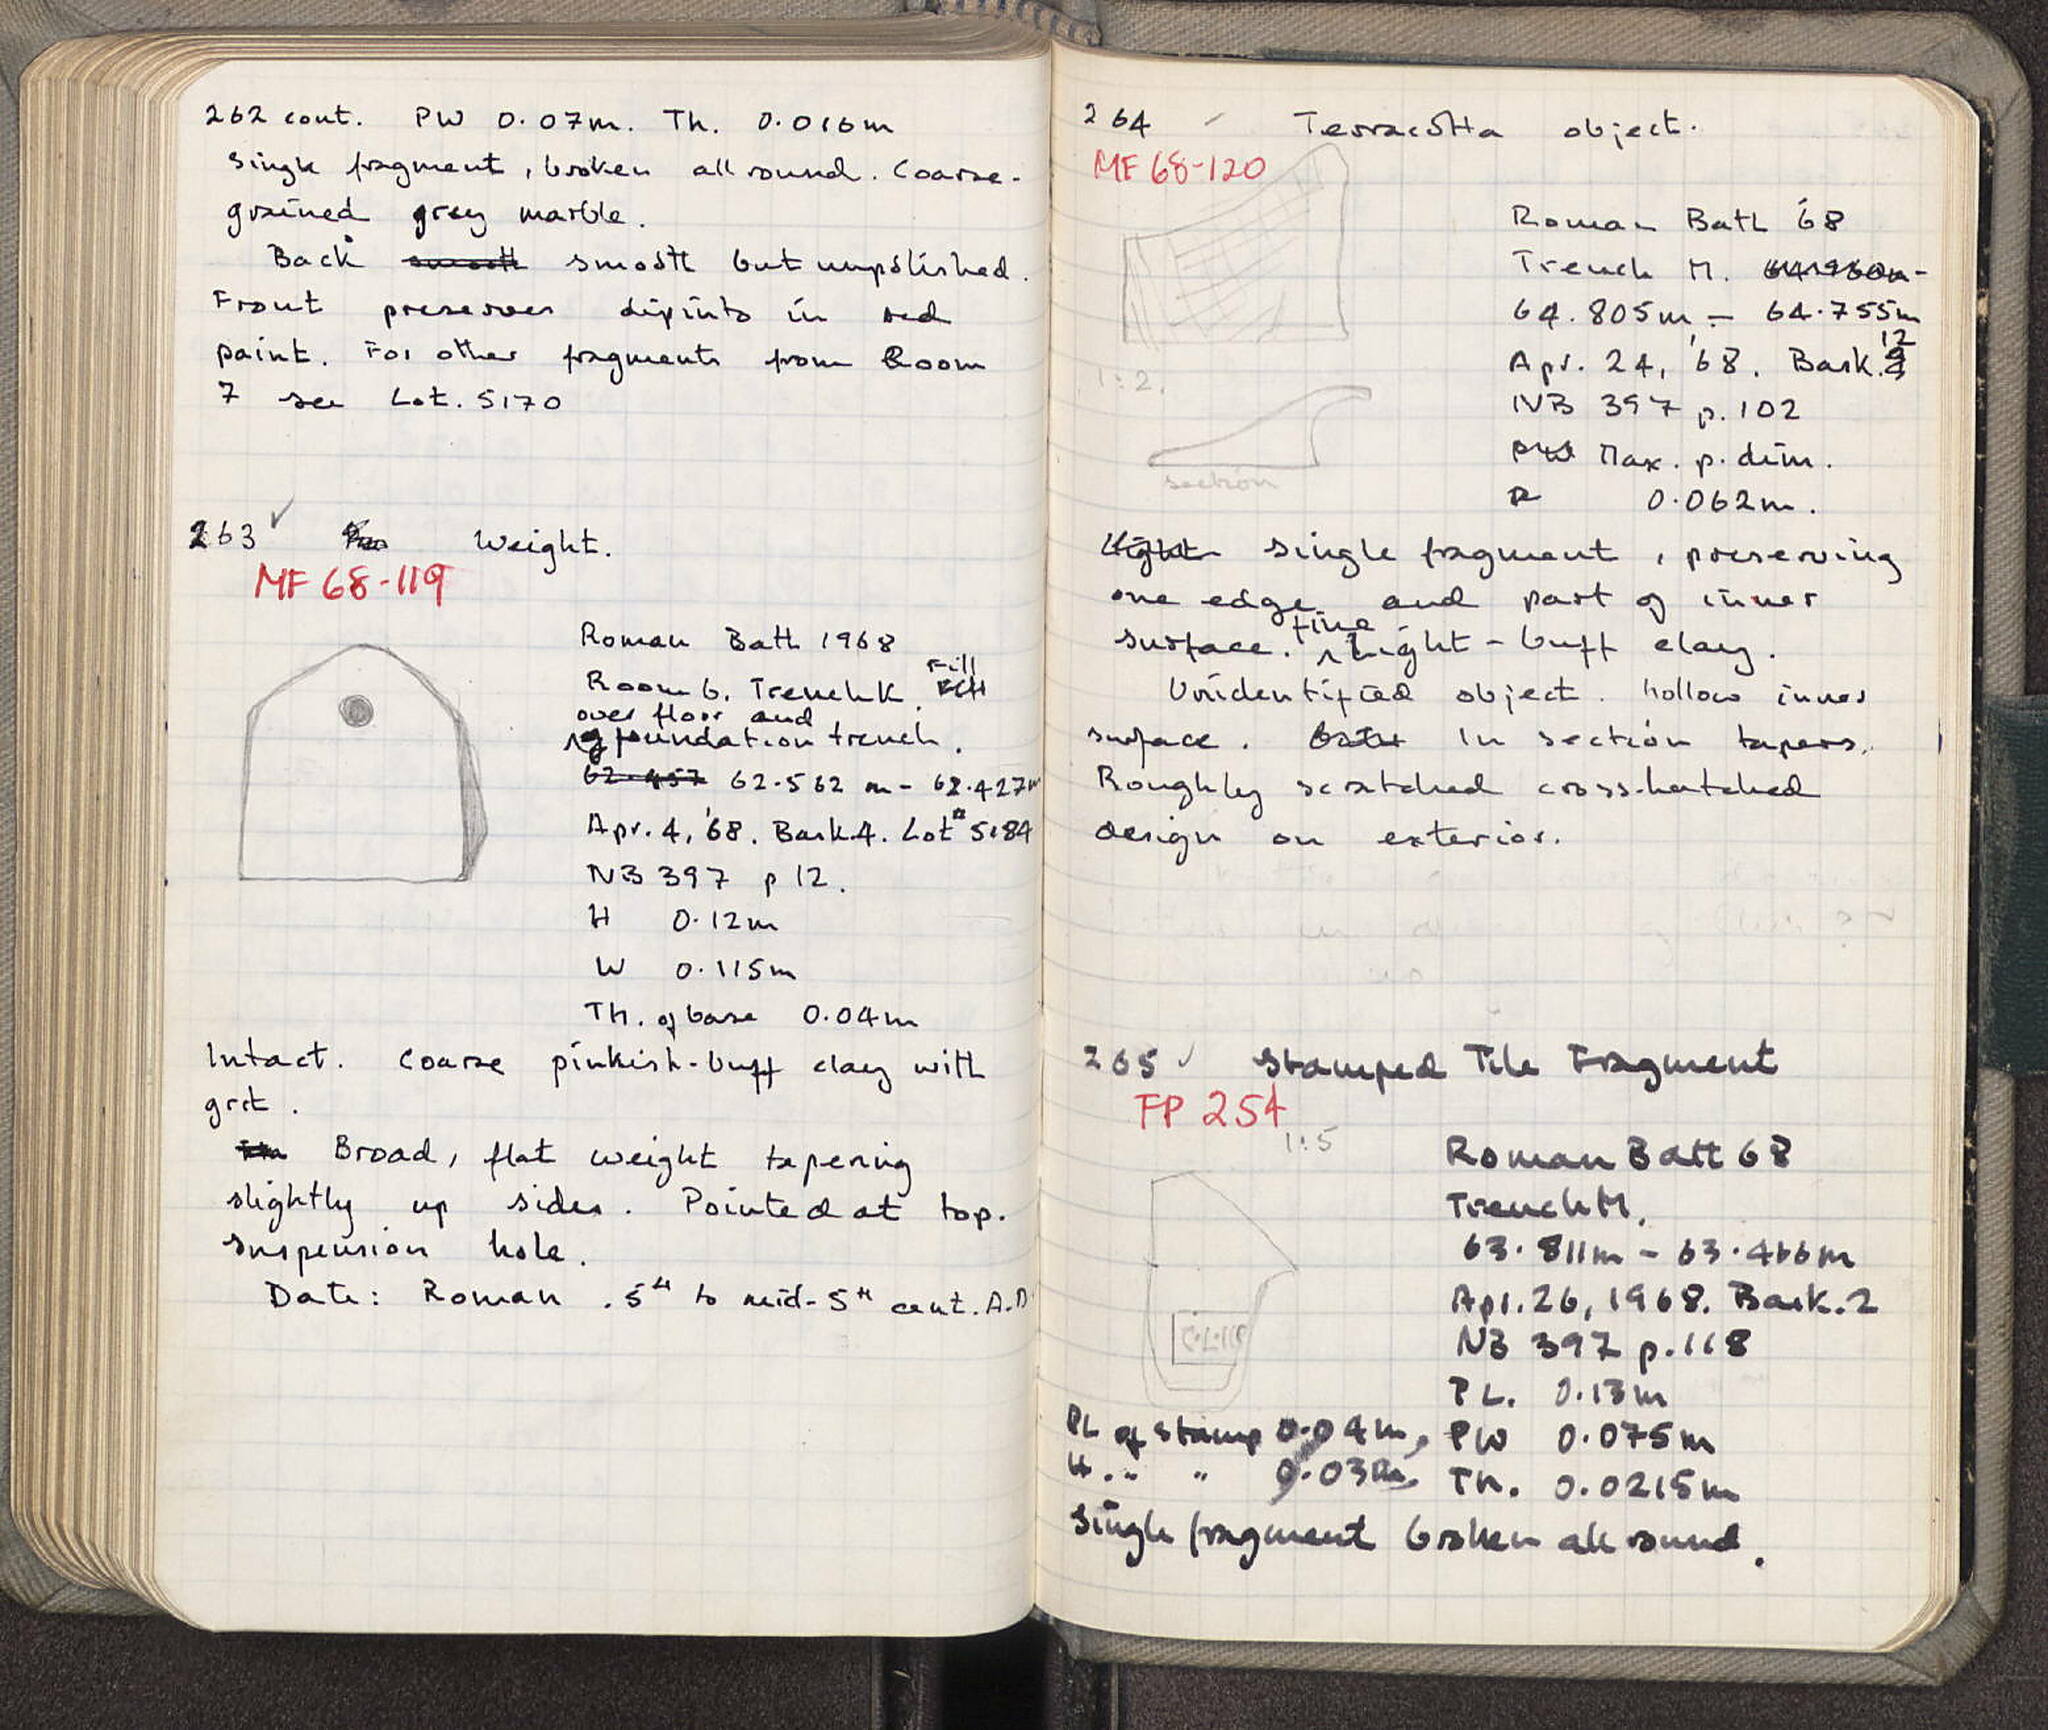 262 cont. PW 0.07m. Th. 0.016m
Single fragment, broken all round. Coarse-
grained grey marble.
Back smooth smooth but unpolished.
Front preserves dipinto in red
paint. For other fragments from Room
7 see Lot. 5170
263 ✓ Weight.
MF 68-119
Roman Bath 1968
Room 6. Trench K. Fill
over floor and
of foundation trench.
62.457 62.562 m - 62.427m
Apr. 4, '68. Bask.4. Lot 5184
NB 397 p 12.
H 0.12m
W 0.115m
Th. of base 0.04m
Intact. Coarse pinkish-buff clay with
grit.
Broad, flat weight tapering
slightly up sides. Pointed at top.
Suspension hole.
Date: Roman. 5th to mid-5th cent. A.D.
264 Terracotta object.
MF 68-120
Roman Bath '68
Trench M.
64.805m - 64.755m
Apr. 24, '68. Bask. 12
NB 397 p. 102
PW Max. p. dim.
0.062m.
1:2.
section
Light Single fragment, preserving
one edge and part of inner
surface. fine light-buff clay.
Unidentified object. Hollow inner
surface. Outer In section tapers.
Roughly scratched cross-hatched
design on exterior.
265 ✓ Stamped Tile Fragment
FP 254
1:5
Roman Bath 68
Trench M.
63.811m - 63.466m
Apr. 26, 1968. Bask. 2
NB 397 p. 118
PL. 0.13m
PL of stamp 0.04m, PW 0.075m
H. " " 0.03m. Th. 0.0215m
Single fragment broken all round.